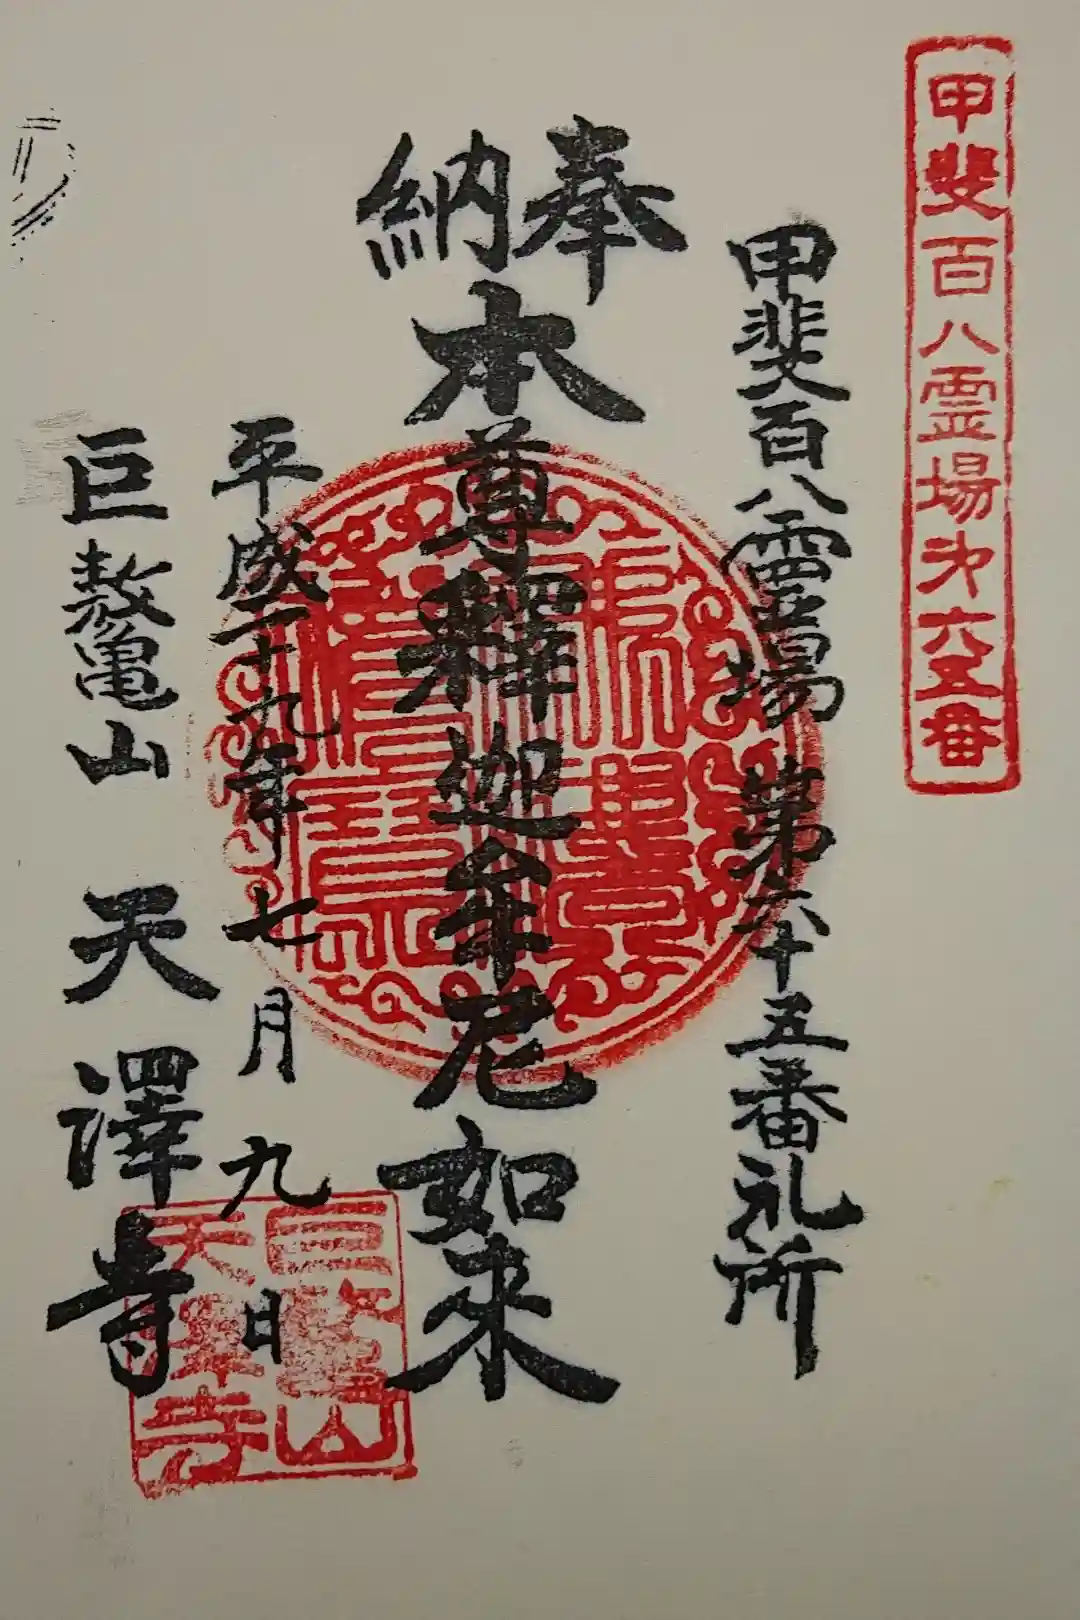 甲斐百八霊場㐧六五番
甲斐百八霊場 第六十五番礼所
奉納
本尊釋迦牟尼如来
平成二十九年七月九日
巨鼇山 天澤寺
巨鼇山
天澤寺